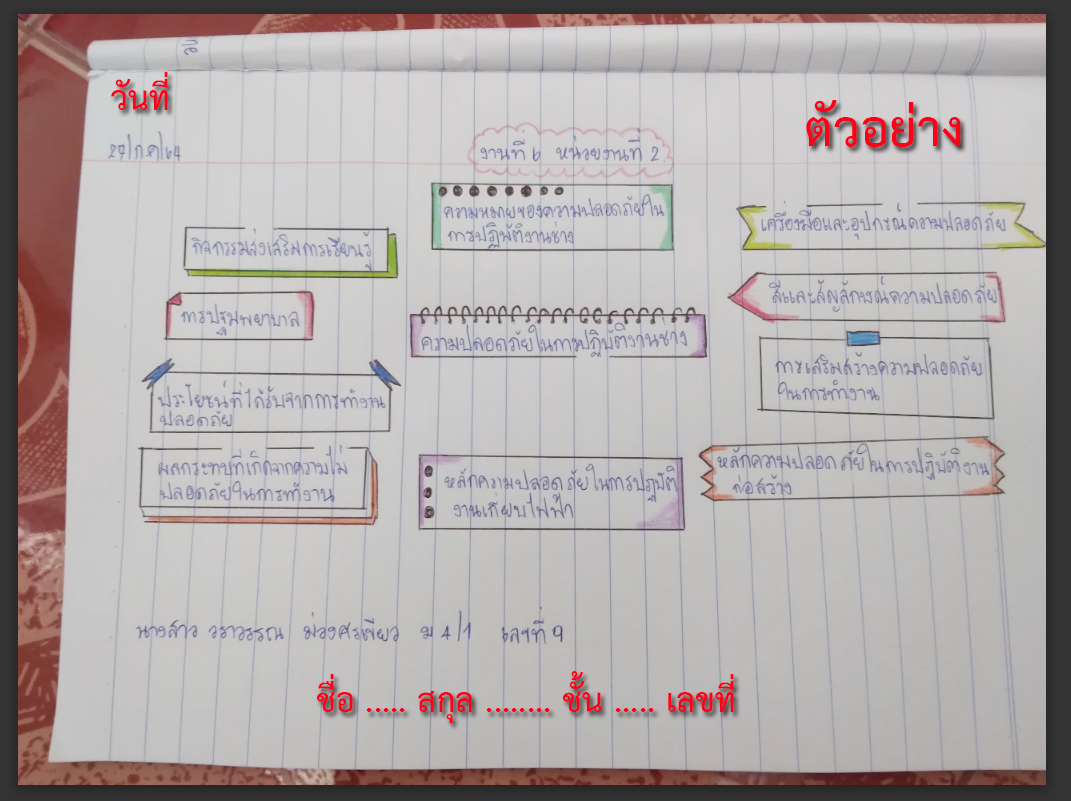 วันที่
ตัวอย่าง
27/ก.ค/64
งานที่ 6 หน่วยงานที่ 2
ความหมายของความปลอดภัยใน
การปฏิบัติงานช่าง
เครื่องมือและอุปกรณ์ความปลอดภัย
กิจกรรมส่งเสริมการเรียนรู้
สีและสัญลักษณ์ความปลอดภัย
การปฐมพยาบาล
ความปลอดภัยในการปฏิบัติงานช่าง
การเสริมสร้างความปลอดภัย
ในการทำงาน
ประโยชน์ที่ได้รับจากการทำงาน
ปลอดภัย
ผลกระทบที่เกิดจากความไม่
ปลอดภัยในการทำงาน
หลักความปลอดภัยในการปฏิบัติ
งานเกี่ยบไฟฟ้า
หลักความปลอดภัยในการปฏิบัติงาน
ก่อสร้าง
นางสาว วราวรรณ ม 4/1 เลขที่ 9
ชื่อ ..... สกุล ........ ชั้น ..... เลขที่